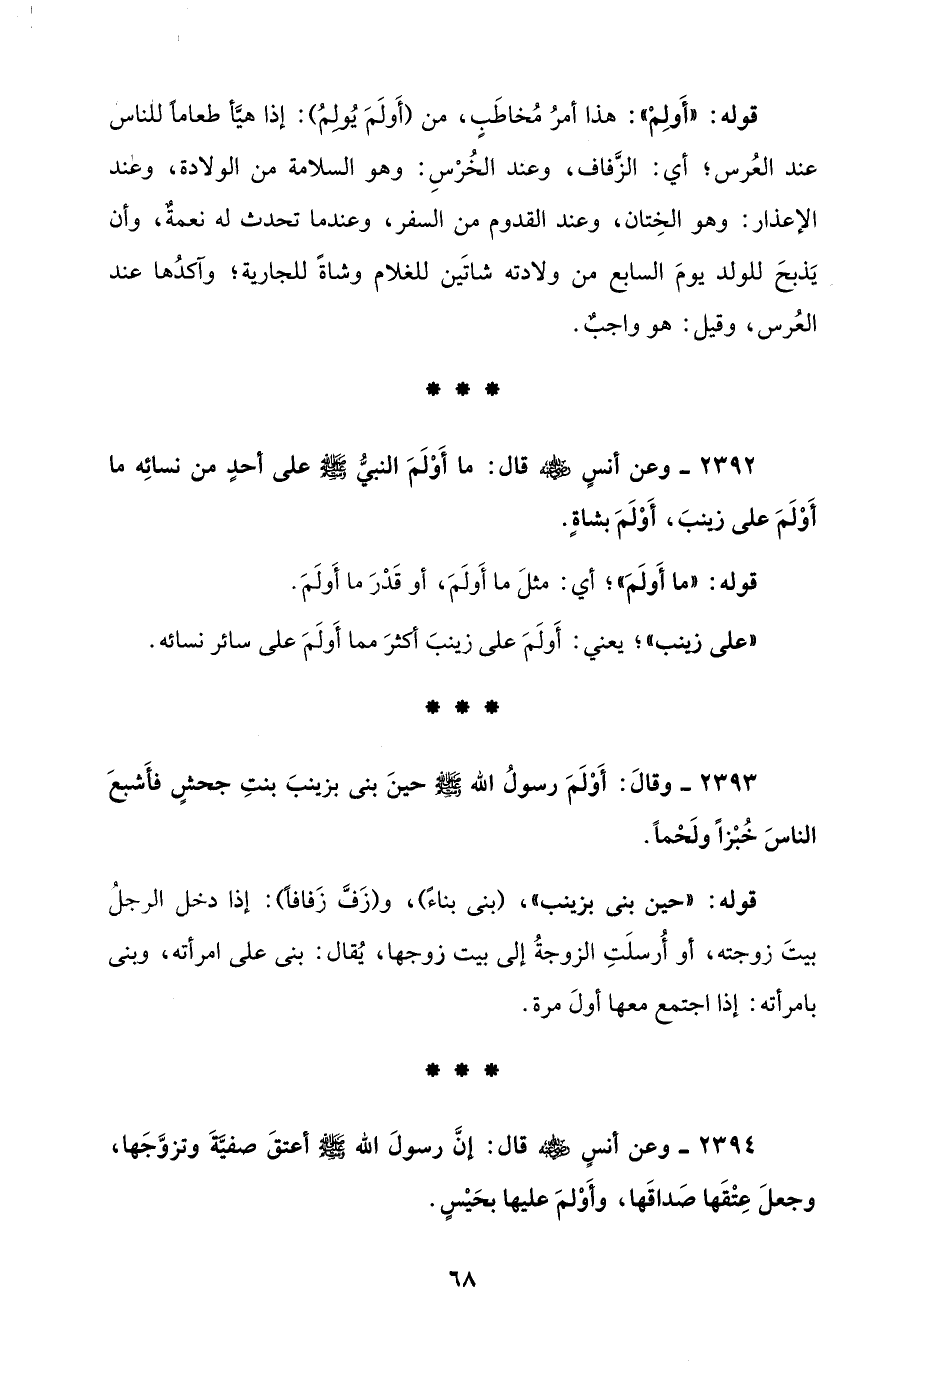 قوله: «أَولِمْ»: هذا أمرُ مُخاطَبٍ، من (أَولَمَ يُولِمُ): إذا هيَّأ طعاماً للناس
عند العُرس؛ أي: الزَّفاف، وعند الخُرْسِ: وهو السلامة من الولادة، وعند
الإعذار: وهو الخِتان، وعند القدوم من السفر، وعندما تحدث له نعمةٌ، وأن
يَذبحَ للولد يومَ السابع من ولادته شاتَين للغلام وشاةً للجارية؛ وآكدُها عند
العُرس، وقيل: هو واجبٌ.
* * *
٢٣٩٢ ـ وعن أنسٍ ﵁ قال: ما أَوْلَمَ النبيُّ ﷺ على أحدٍ من نسائِه ما
أَوْلَمَ على زينبَ، أَوْلَمَ بشاةٍ.
قوله: «ما أَولَمَ»؛ أي: مثلَ ما أَولَمَ، أو قَدْرَ ما أَولَمَ.
«على زينب»؛ يعني: أَولَمَ على زينبَ أكثرَ مما أَولَمَ على سائر نسائه.
* * *
٢٣٩٣ ـ وقالَ: أَوْلَمَ رسولُ الله ﷺ حينَ بنى بزينبَ بنتِ جحشٍ فأَشبعَ
الناسَ خُبْزاً ولَحْماً.
قوله: «حين بنى بزينب»، (بنى بناءً)، و(زَفَّ زَفافاً): إذا دخل الرجلُ
بيتَ زوجته، أو أُرسلَتِ الزوجةُ إلى بيت زوجها، يُقال: بنى على امرأته، وبنى
بامرأته: إذا اجتمع معها أولَ مرة.
* * *
٢٣٩٤ ـ وعن أنسٍ ﵁ قال: إنَّ رسولَ الله ﷺ أعتقَ صفيَّةَ وتزوَّجَها،
وجعلَ عِتْقَها صَداقَها، وأَوْلمَ عليها بحَيْسٍ.
٦٨